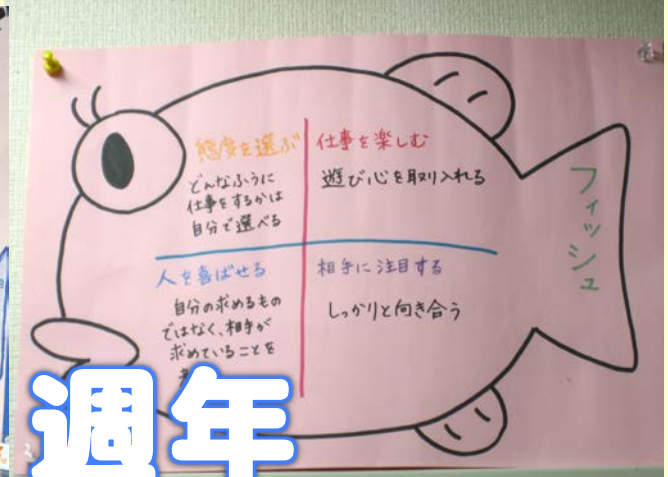 態度を選ぶ
どんなふうに
仕事をするかは
自分で選べる
仕事を楽しむ
遊び心を取り入れる
人を喜ばせる
自分の求めるもの
ではなく、相手が
求めていることを
相手に注目する
しっかりと向き合う
フィッシュ
週年